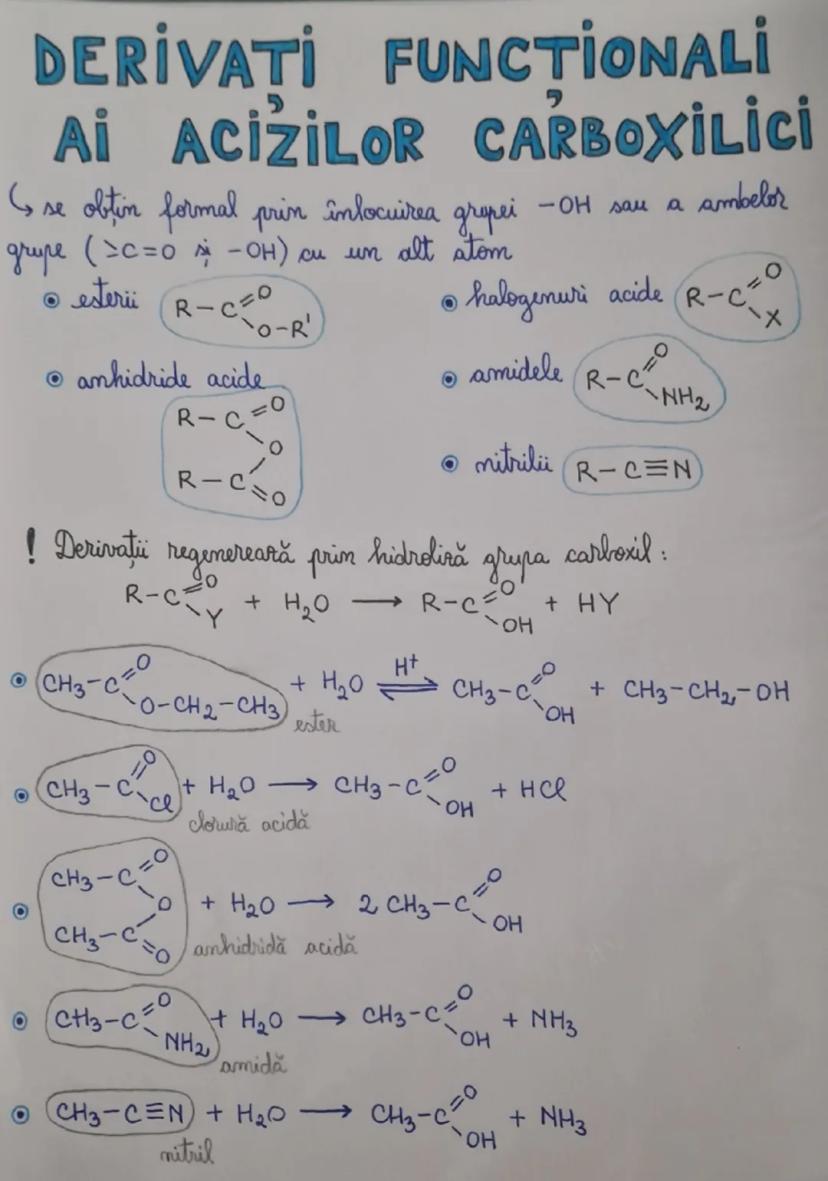 DERIVAȚI FUNCȚIONALI
AI ACIZILOR CARBOXILICI
↳ se obțin formal prin înlocuirea grupei -OH sau a ambelor
grupe (>C=O și -OH) cu un alt atom
esterii R-C=O O-R'
halogenuri acide R-C=O X
anhidride acide
R-C=O
O
R-C=O
amidele R-C=O NH₂
nitrilii R-C≡N
! Derivații regenerează prin hidroliză grupa carboxil:
R-C=O Y + H₂O → R-C=O OH + HY
CH₃-C=O O-CH₂-CH₃ + H₂O ⇌ H⁺ CH₃-C=O OH + CH₃-CH₂-OH
ester
CH₃-C=O Cl + H₂O → CH₃-C=O OH + HCl
clorură acidă
CH₃-C=O
O + H₂O → 2 CH₃-C=O OH
CH₃-C=O
anhidridă acidă
CH₃-C=O NH₂ + H₂O → CH₃-C=O OH + NH₃
amidă
CH₃-C≡N + H₂O → CH₃-C=O OH + NH₃
nitril